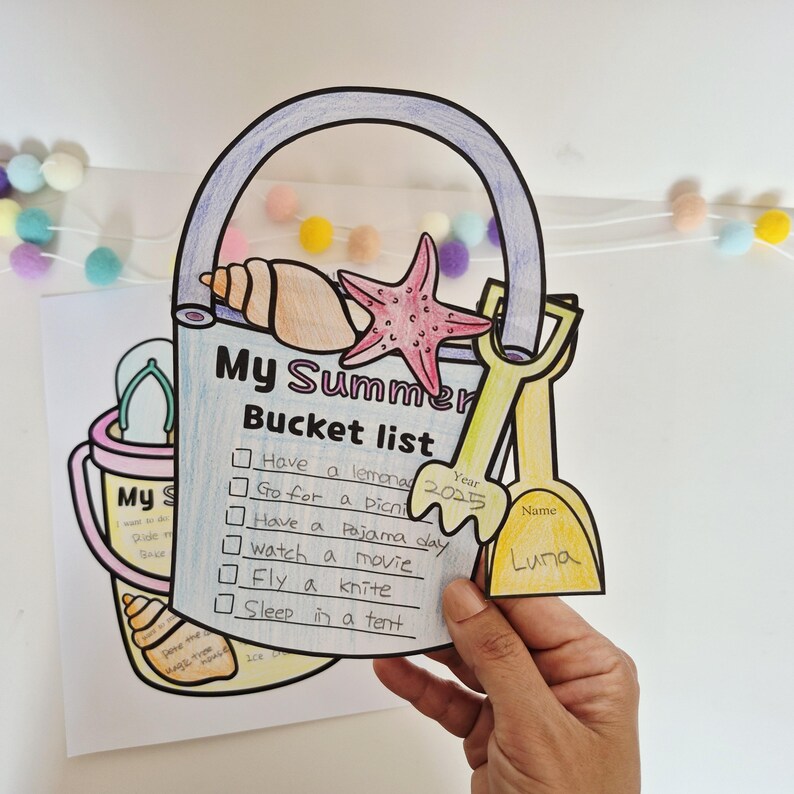 My Summer
Bucket list
Have a lemona
Go for a picni
Have a Pajama day
Watch a movie
Fly a knite
Sleep in a tent
Year
2025
Name
Luna
My S
I want to do:
Ride m
Bake
pete the
magic tree
house
Ice